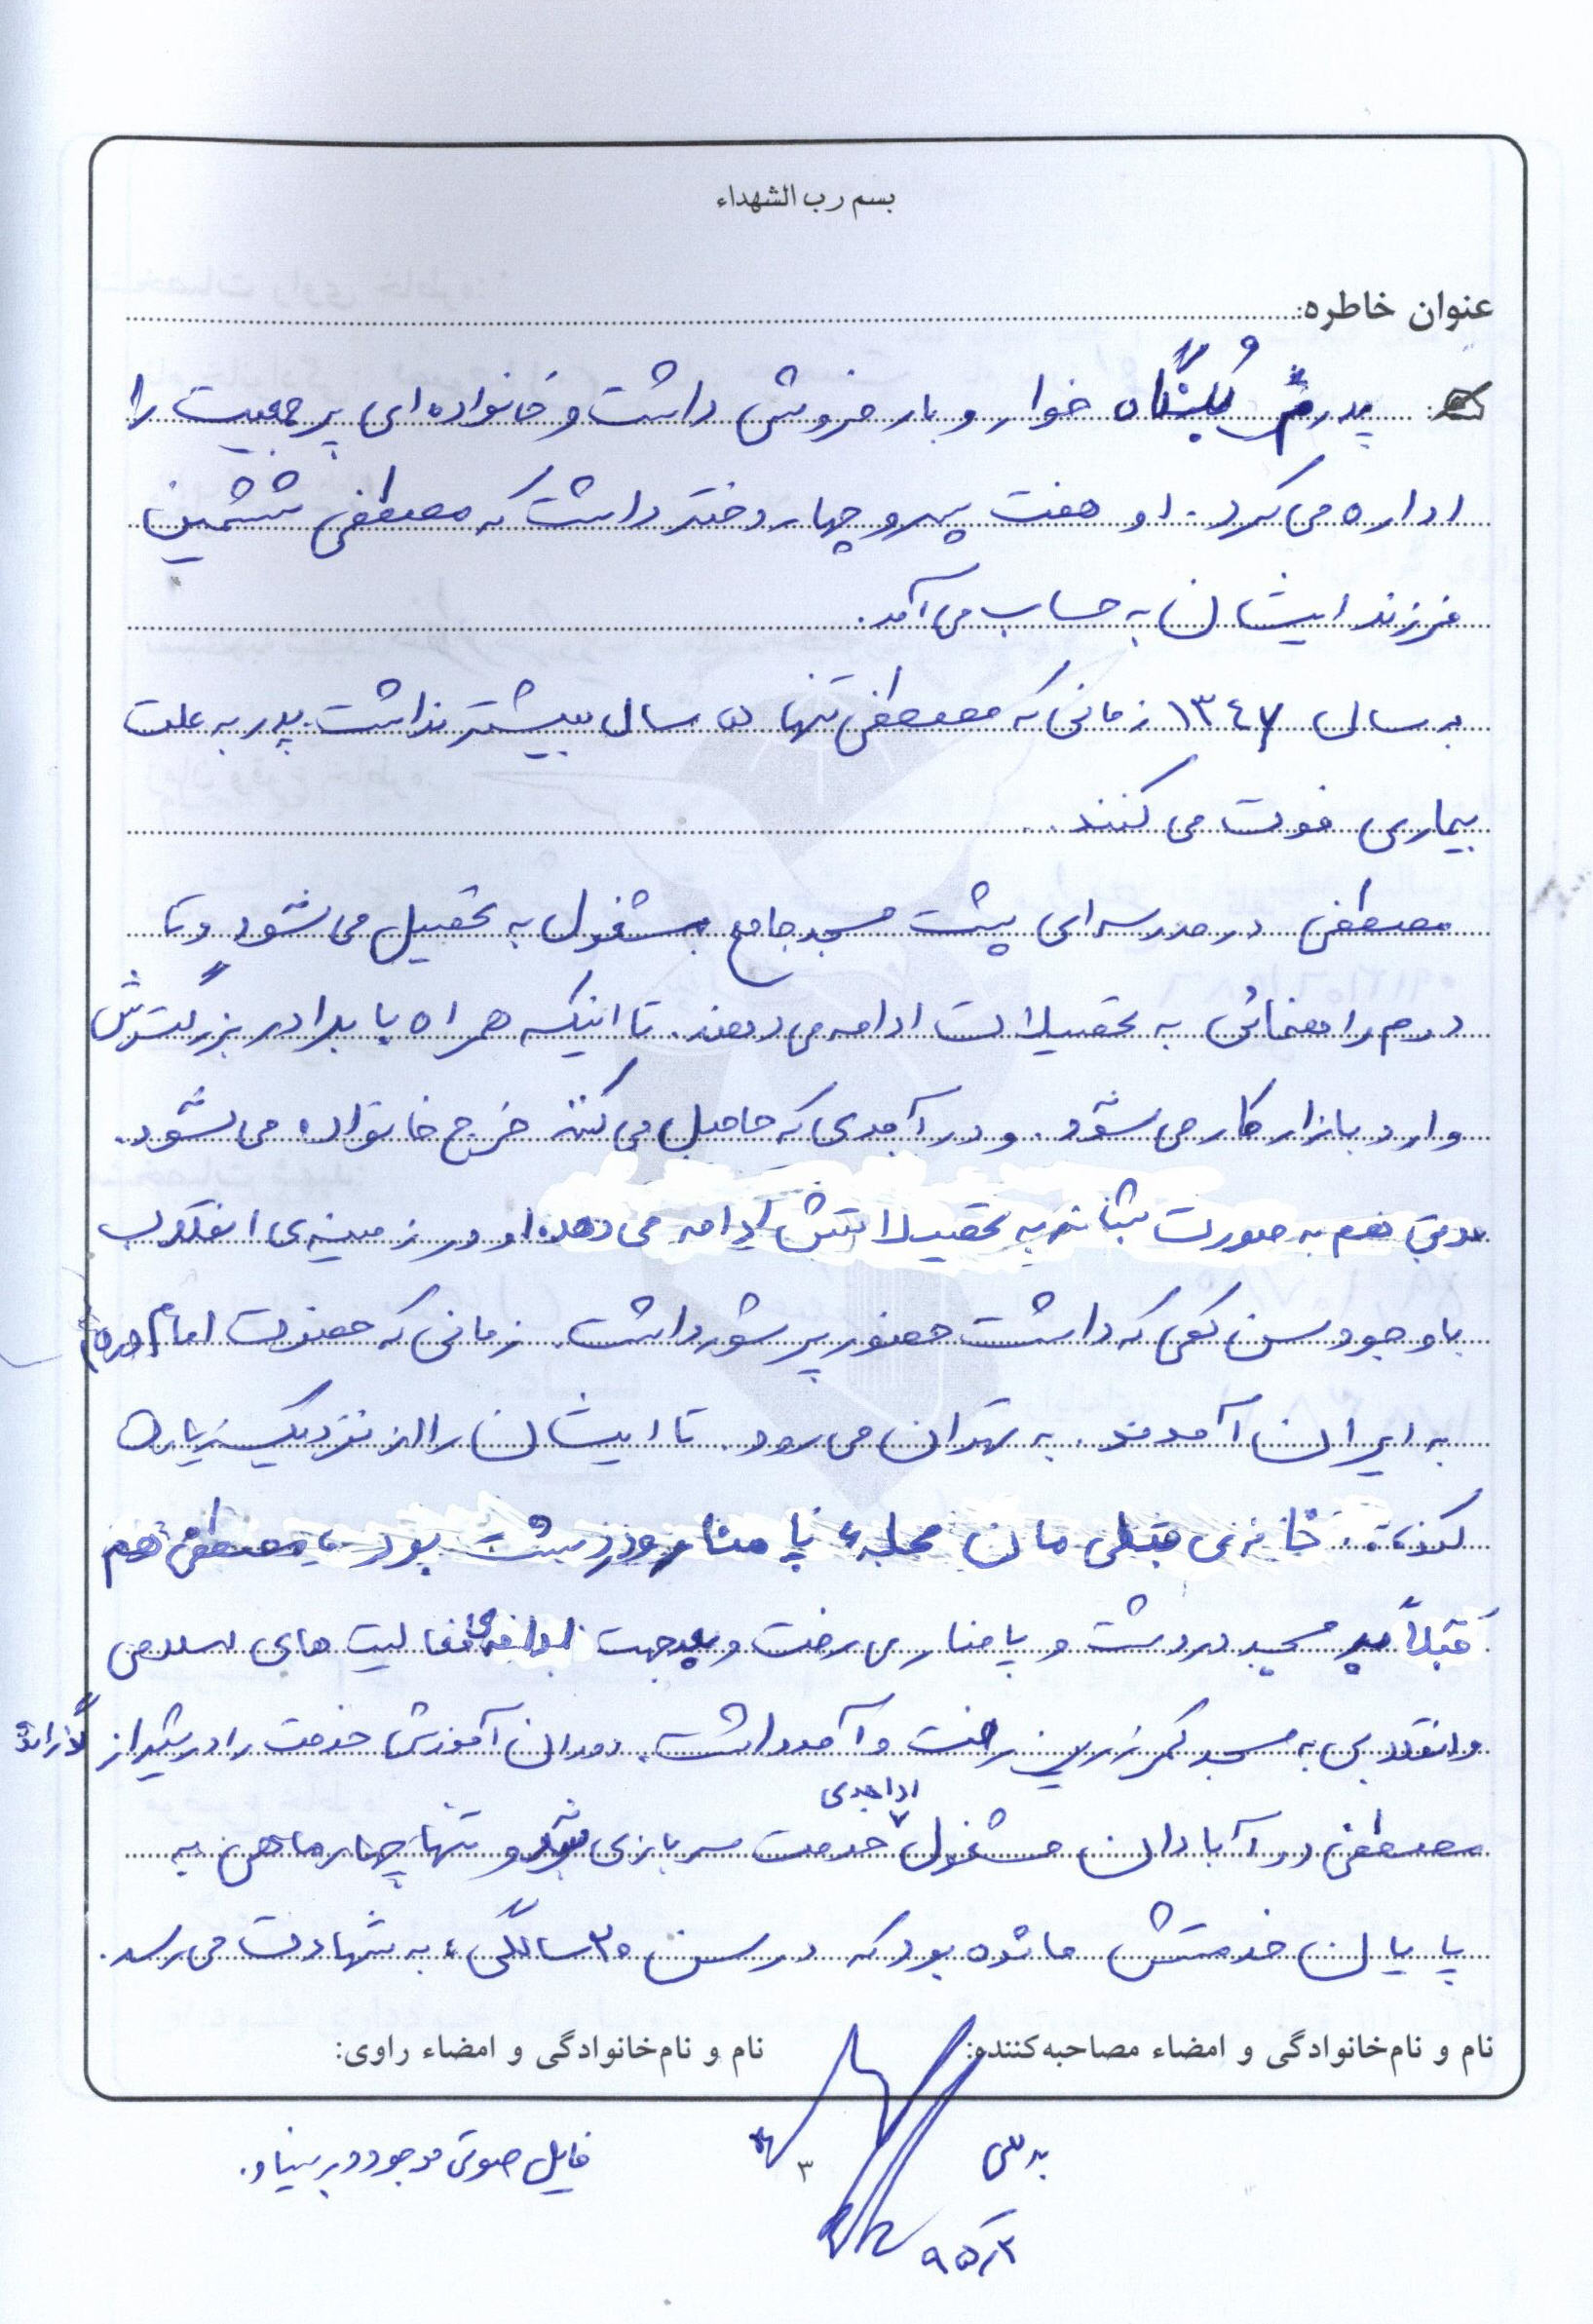 بسم رب الشهداء
عنوان خاطره:
پدرم بُنکدار خوار و بار فروشی داشت و خانواده ای پر جمعیت را
اداره می کرد. او هفت پسر و چهار دختر داشت که مصطفی ششمین
فرزند ایشان به حساب می آمد.
به سال ۱۳۴۷ زمانی که مصطفی تنها ۵ سال بیشتر نداشت. پدر به علت
بیماری فوت می کنند.
مصطفی در مدرسه ای پشت مسجد جامع مشغول به تحصیل می شود و تا
دوم راهنمائی به تحصیلات ادامه می دهند. تا اینکه همراه با برادر بزرگترش
وارد بازار کار می شود. و در آمدی که حاصل می کند خرج خانواده می شود.
مدتی هم به صورت شبانه به تحصیلاتش ادامه می دهد. او در زمینه ی انقلاب
با وجود سن کمی که داشت حضور پر شور داشت. زمانی که حضرت امام (ره)
به ایران آمدند. به تهران می رود. تا ایشان را از نزدیک زیارت
کند. خانه ی قبلی مان محله ء پا منار دردشت بود. مصطفی هم
قبلاً مسجد دردشت و پا منار می رفت و جهت ادامه ی فعالیت های اسلامی
و انقلابی به مسجد کمرزرین رفت و آمد داشت. دوران آموزشی خدمت را در شیراز گذراند
مصطفی در آبادان مشغول ادامه ی خدمت سربازی شد و تنها چهار ماهی به
پایان خدمتش مانده بود که در سن ۲۰ سالگی، به شهادت می رسد.
نام و نام‌خانوادگی و امضاء مصاحبه‌کننده:
نام و نام‌خانوادگی و امضاء راوی:
فایل صوتی موجود در بنیاد.
۳